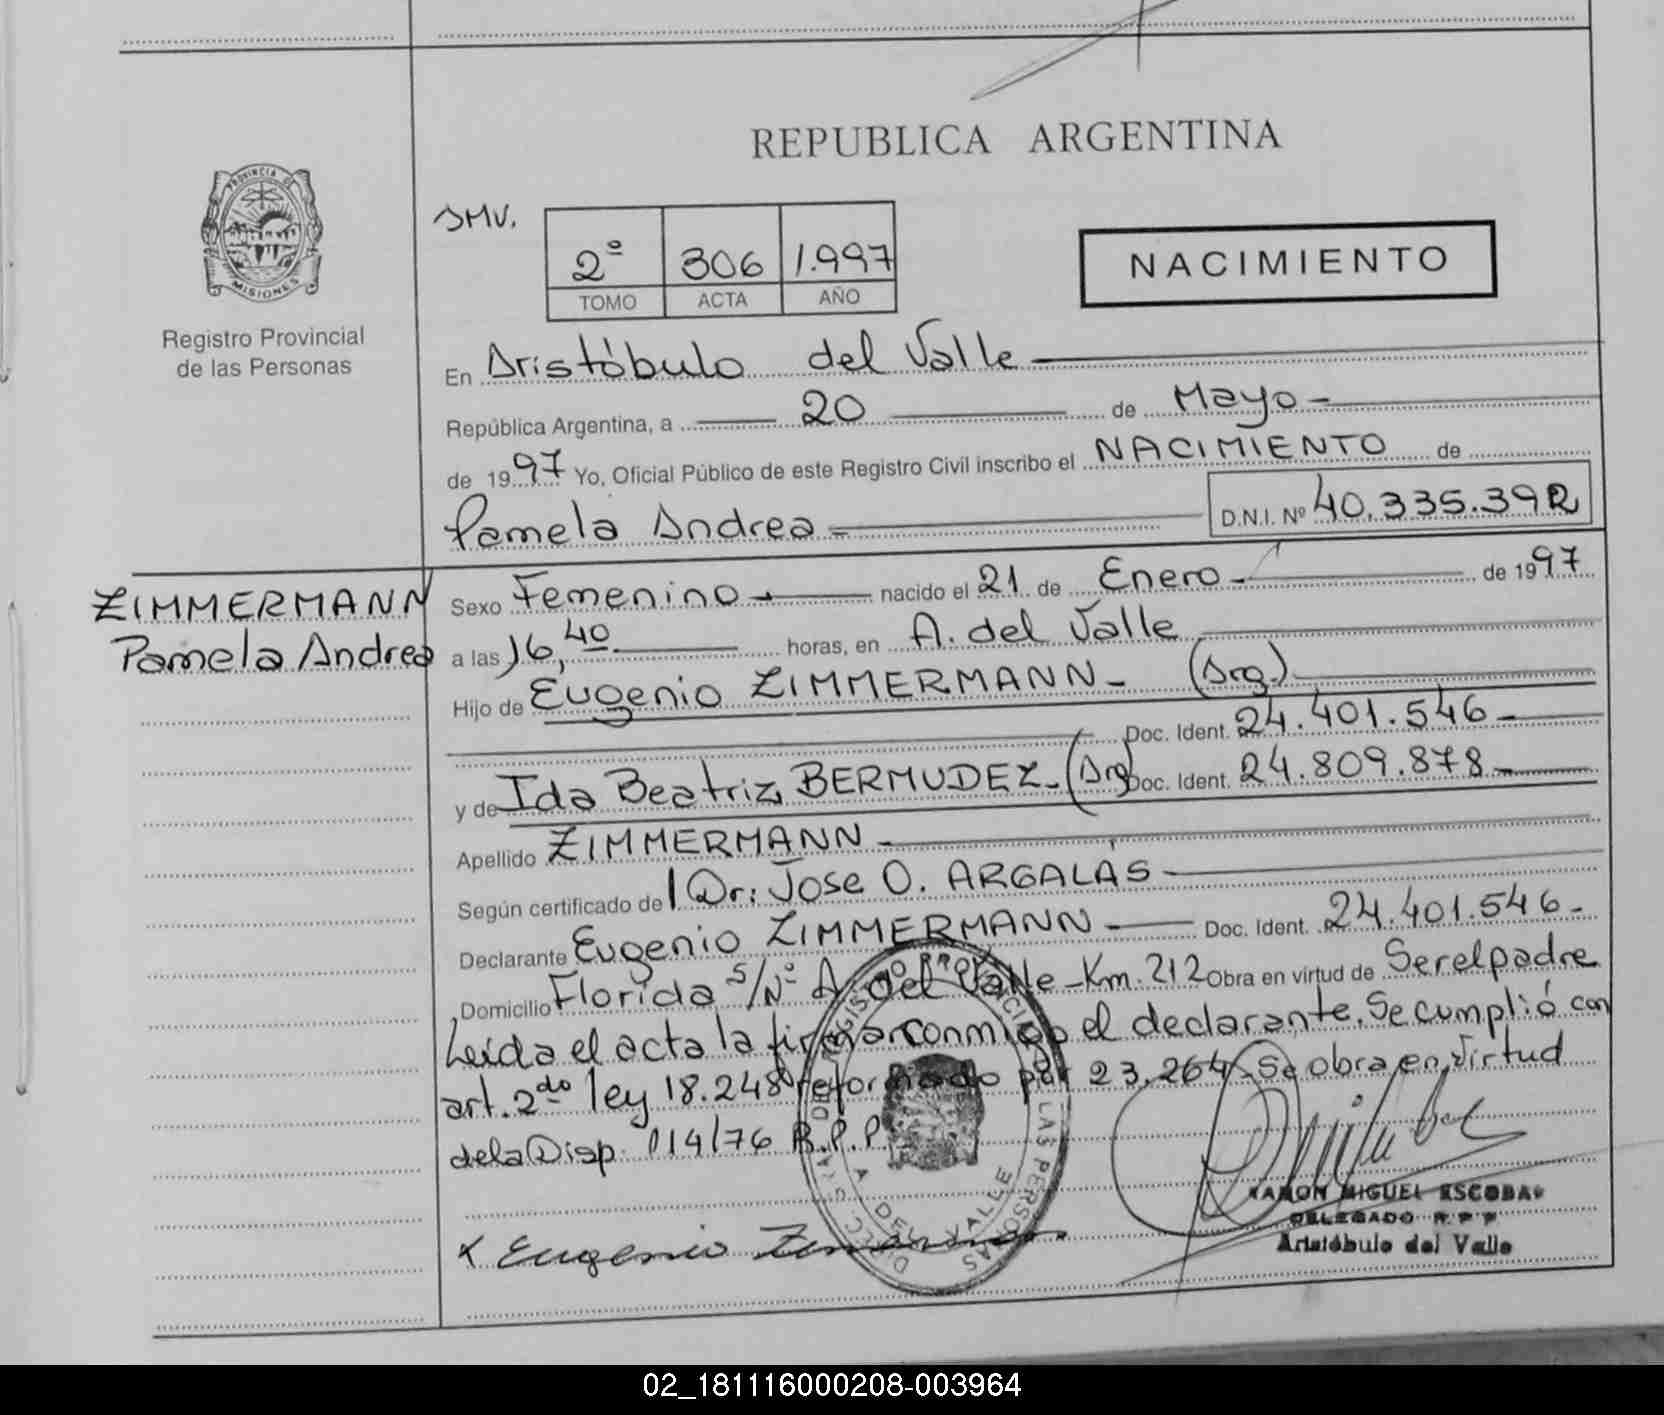 REPUBLICA ARGENTINA
PROVINCIA DE
MISIONES
Registro Provincial
de las Personas
SMV.
2º 306 1.997
TOMO ACTA AÑO
NACIMIENTO
En Aristóbulo del Valle
República Argentina, a 20 de Mayo
de 1997 Yo, Oficial Público de este Registro Civil inscribo el NACIMIENTO de
Pamela Andrea D.N.I. Nº 40.335.392
ZIMMERMANN
Pamela Andrea
Sexo Femenino nacido el 21 de Enero de 1997
a las 16,40 horas, en A. del Valle
Hijo de Eugenio ZIMMERMANN (Arg.)
Doc. Ident. 24.401.546
y de Ida Beatriz BERMUDEZ (Arg) Doc. Ident. 24.809.878
Apellido ZIMMERMANN
Según certificado del Dr: Jose O. ARGALAS
Declarante Eugenio ZIMMERMANN Doc. Ident. 24.401.546
Domicilio Florida S/Nº A. del Valle Km. 212 Obra en virtud de Ser el padre
Leída el acta la firman conmigo el declarante. Se cumplió con
art. 2do ley 18.248 reformado por 23.264 Se obra en Virtud
de la Disp. 014/76 R.P.P.
A. DEL VALLE
RAMON MIGUEL ESCOBAR
DELEGADO R.P.P
Aristóbulo del Valle
x Eugenio Zimmermann
02_181116000208-003964